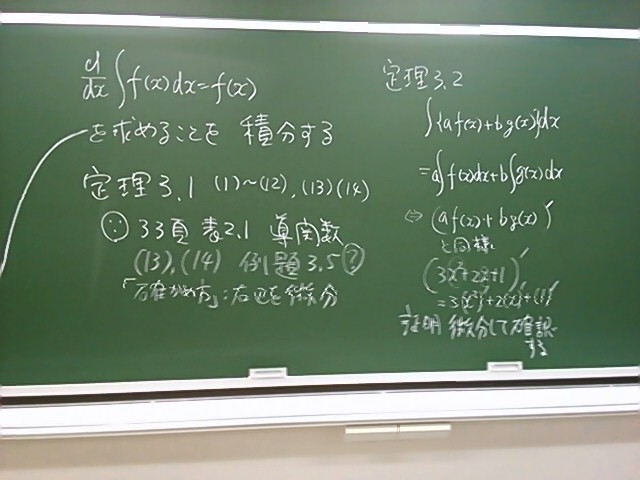 d/dx ∫f(x)dx=f(x)
を求めることを 積分する
定理3.1 (1)~(12), (13)(14)
∵ 33頁 表2.1 導関数
(13),(14) 例題3.5?
「確かめ方」:右辺を微分
定理3.2
∫{af(x)+bg(x)}dx
=a∫f(x)dx+b∫g(x)dx
⇔ (af(x)+bg(x))'
と同様
(3x²+2x+1)'
=3(x²)'+2(x)'+(1)'
証明 微分して確認
する